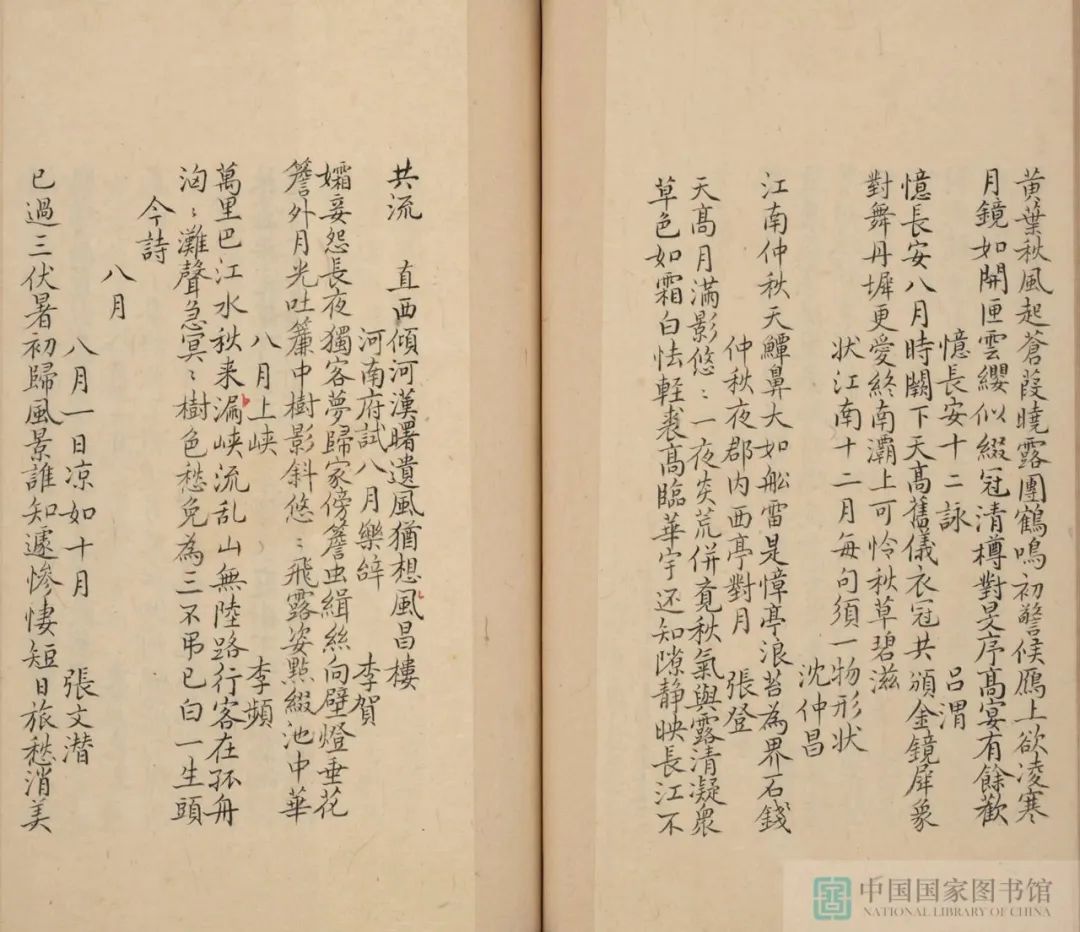 黄葉秋風起蒼葭曉露團鶴鳴初警候鴈上欲凌寒
月鏡如開匣雲纓似綴冠清樽對旻序髙宴有餘歡
憶長安十二詠 呂渭
憶長安八月時闕下天髙舊儀衣冠共頒金鏡犀象
對舞丹墀更愛終南灞上可怜秋草碧滋
状江南十二月每句須一物形状
沈仲昌
江南仲秋天鱏鼻大如舩雷是樟亭浪苔為界石錢
仲秋夜郡内西亭對月 張登
天髙月滿影悠〻一夜炎荒併覔秋氣與露清凝衆
草色如霜白怯輕裘髙臨華宇还知隙静映長江不
共流 直西傾河漢曙遺風猶想風昌樓
河南府試八月樂辝 李賀
孀妾怨長夜獨客夢歸家傍簷虫緝絲向壁燈垂花
簷外月光吐簾中樹影斜悠〻飛露姿點綴池中華
八月上峡 李頻
萬里巴江水秋来漏峡流乱山無陸路行客在孤舟
洶〻灘聲急冥〻樹色愁免為三不吊已白一生頭
今詩
八月
八月一日凉如十月 張文潜
已過三伏暑初歸風景誰知遽慘悽短日旅愁消美
中国国家图书馆
NATIONAL LIBRARY OF CHINA